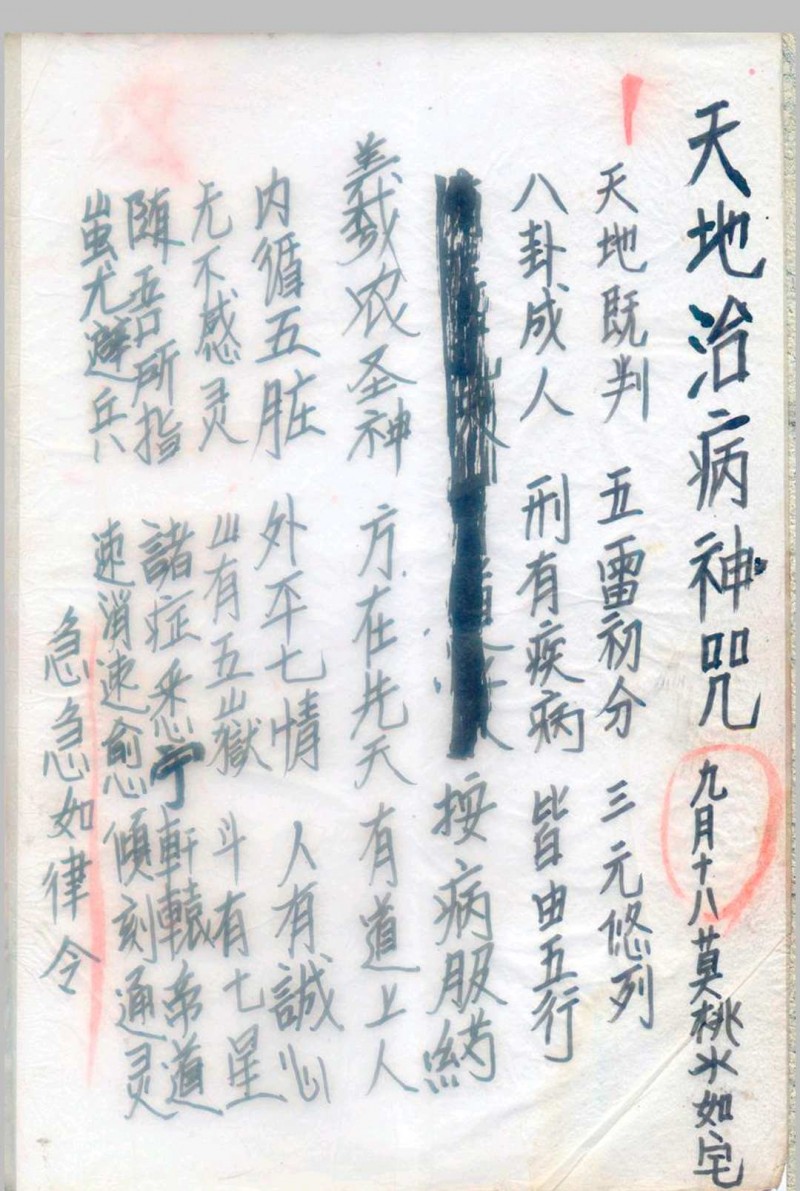 天地治病神咒 九月十八 莫桃水如宅
天地既判 五雷初分 三元悠列
八卦成人 刑有疾病 皆由五行
按病服药
羲农圣神 方在先天 有道上人
内循五脏 外平七情 人有誠心
无不感灵 山有五嶽 斗有七星
随吾所指 諸症悉宁 軒轅帝道
蚩尤避兵 速消速愈 傾刻通灵
急急如律令